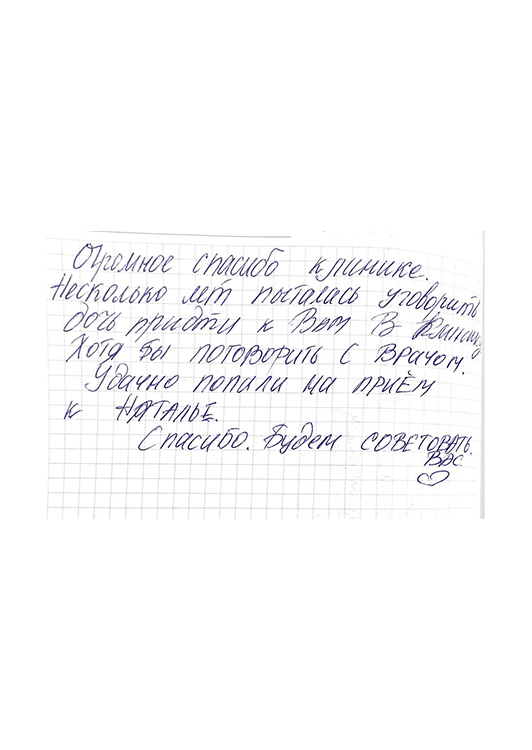 Огромное спасибо клинике.
Несколько лет пыталась уговорить
дочь придти к Вам в клинику
Хотя бы поговорить с врачом.
Удачно попали на приём
к Наталье.
Спасибо. Будем советовать.
Вас